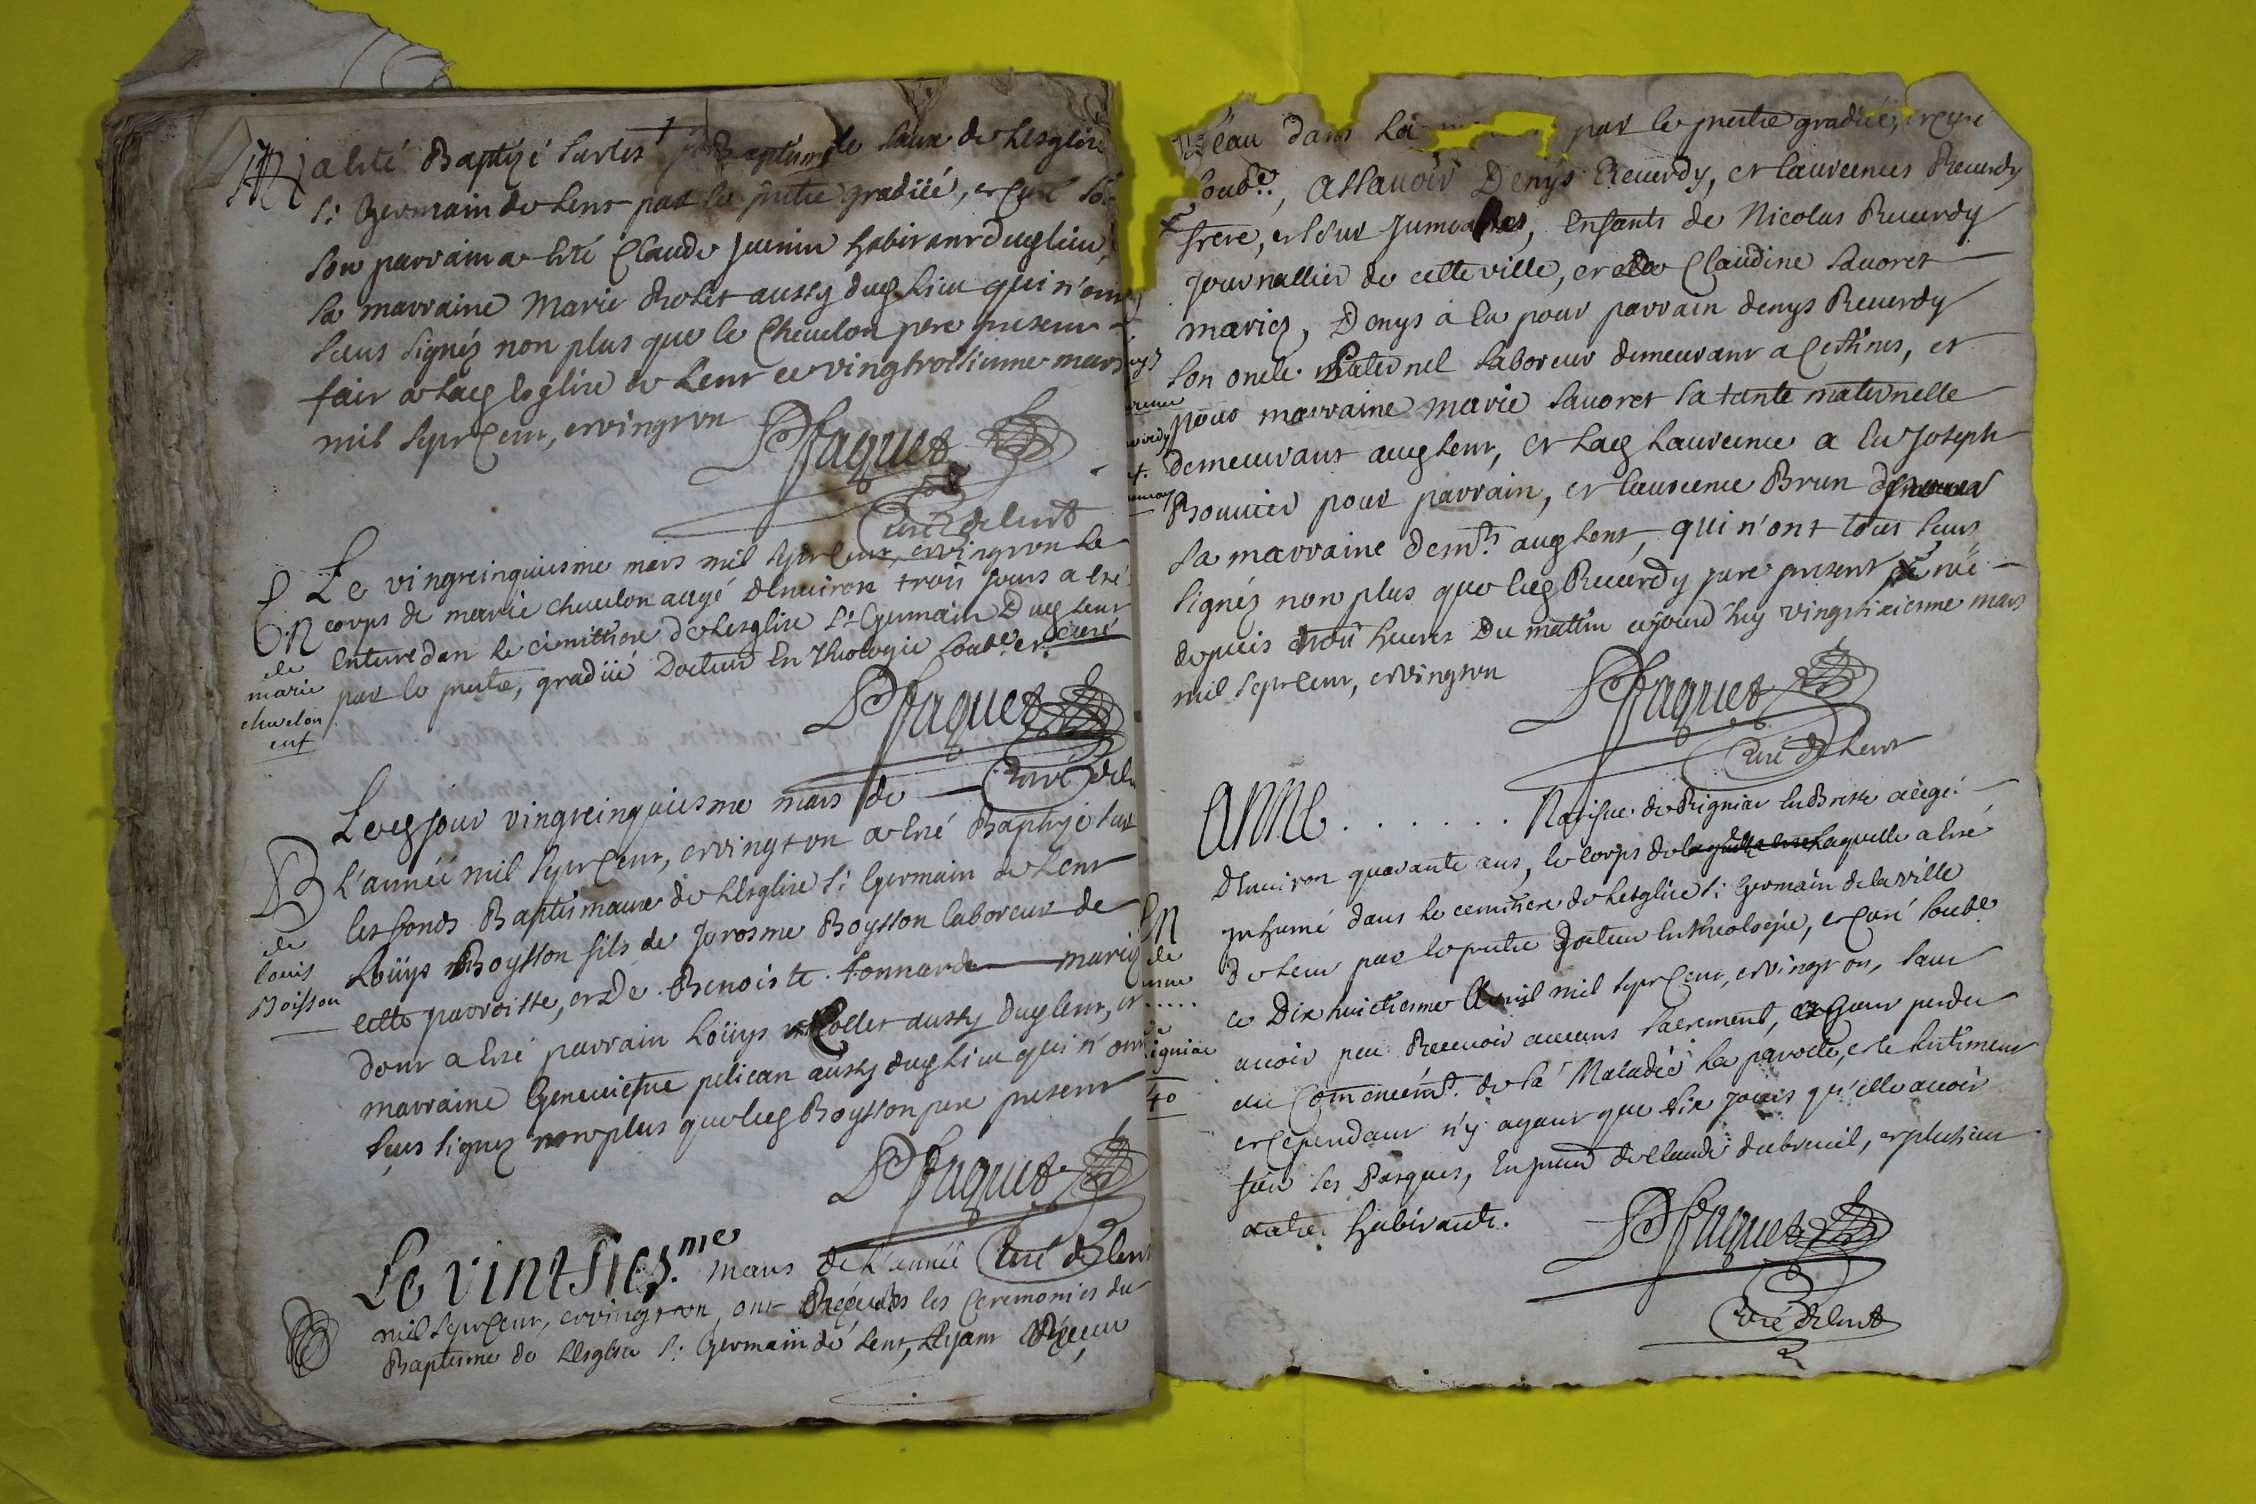 a esté Baptizé sur les fonds Baptismaux de l'esglise
St Germain de Lent par le prêtre gradüé, et curé
son parrain a esté Claude Juenin habitant dud lieu,
la marraine Marie Rolet aussy dud lieu qui n'ont
sceus signés non plus que le Chevelon pere present
fait a lad Esglise de Lent ce vingt troisieme mars
mil sept Cent, et vingt un
Faguet
Curé de Lent
Le vingt cinquiesme mars mil sept Cent, et vingt un le
corps de marie chevelon aagé d'Environ trois jours a esté
Enterré dan le cimittiere de Lesglise St Germain Dud Lent
par le prestre, gradüé Docteur En Theologie soubs.é et curé
En
de
marie
chevelon
enf
Faguet
Curé de Lent
Le dit jour vingt cinquiesme mars de
L'année mil sept Cent, et vingt un a esté Baptizé sur
les fonds Baptismaux de Lesglise St Germain de Lent
Loüys Boysson fils de Jerosme Boysson laboreur de
cette parroisse, et De Benoiste Tonnarde mariez
dont a esté parrain Loüys Collet aussy dud lent, et
marraine Geneviefve pelican aussy dud lieu qui n'ont
sçus signez non plus que led Boysson pere present
B
de
louis
Boisson
Faguet
Curé de lent
Le vintsies.me mars de L'année
mil sept Cent, et vingt un, ont Reçeües les Ceremonies du
Baptesme de Lesglise St Germain de Lent, Ayant Reçeu
L'eau dans la par le prestre gradüé, et Curé
soub.é, Assavoir Denys Reverdy, et laurence Reverdy
frere, et seur Jumeaux, Enfants de Nicolas Reverdy
Journallier de cette ville, et de Claudine Savoret
mariez, Denys a Eu pour parrain denys Reverdy
son oncle Paternel Laboreur demeurant a Certines, et
pour marraine marie Savoret sa tante maternelle
demeurant aud Lent, et Lad Laurence a Eu Joseph
Bouvier pour parrain, et laurence Brun
sa marraine dem.t aud Lent, qui n'ont tous sceus
signés non plus que led Reverdy pere present né
depuis trois heures Du mattin aujourd'huy vingt sixiesme mars
mil sept Cent, et vingt un
Faguet
Curé de Lent
Anne . . . . . . . Natifve de Rigniat En Bresse aagé
D'Environ quarante ans, le corps de laquelle a esté
Inhumé dans le cemittiere de Lesglise St Germain de la ville
de Lent par le prestre Docteur En Theologie, et Curé soubs.é
ce Dix huictiesme Avril mil sept Cent, et vingt un, sans
avoir peu Recevoir aucuns sacrement, ayant perdu
au Commencém.t de sa Maladie la parole, et le sentiment
et cependant n'y ayant que dix jours qu'elle avoit
fait ses Pasques, En presence de Claude dubreuil, et plusieurs
autres habitants.
En
de
anne
.....
de
Rigniat
40
Faguet
Curé de Lent